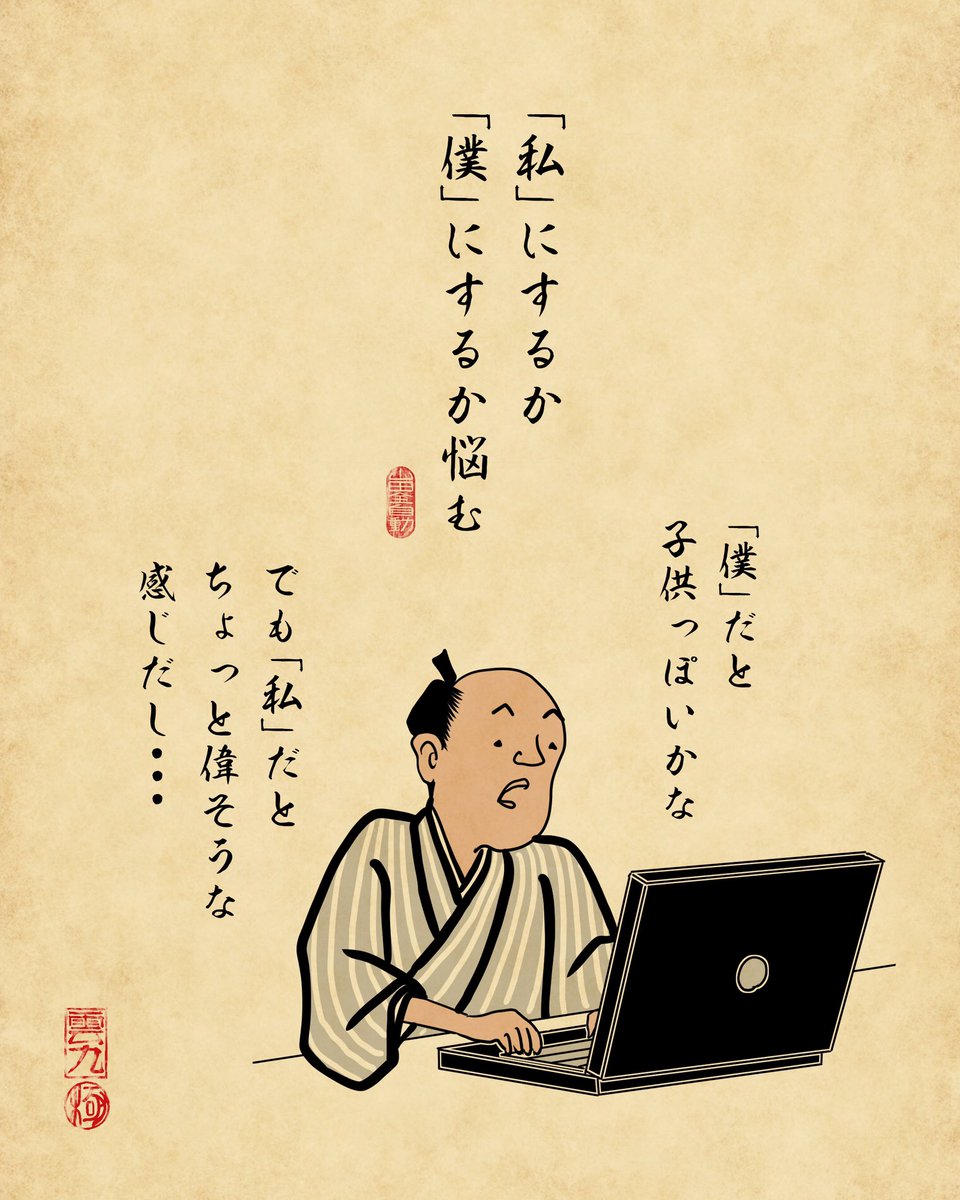 「私」にするか
「僕」にするか悩む
「僕」だと
子供っぽいかな
でも「私」だと
ちょっと偉そうな
感じだし・・・